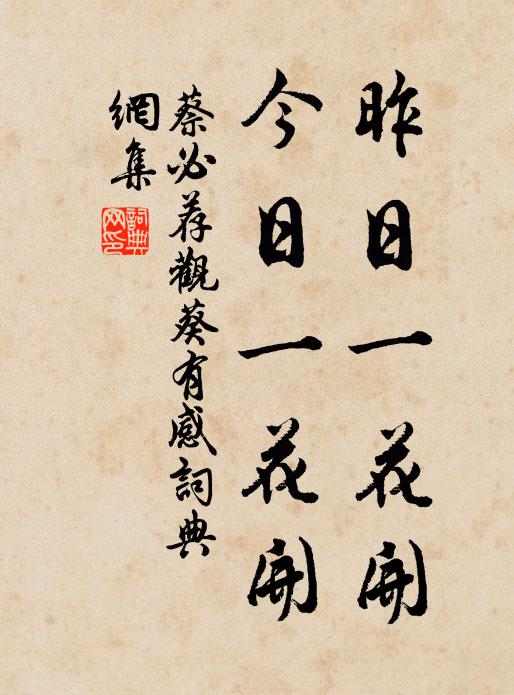 昨日一花開
今日一花開
蔡必荐觀葵有感詞典
網集
詞典網印